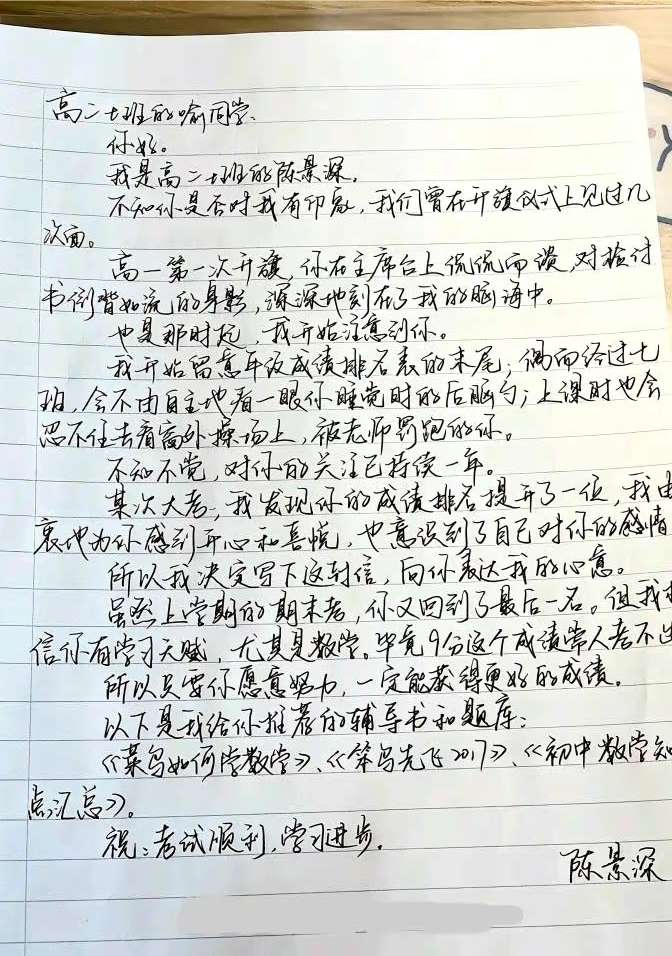 高二七班的喻同学、
你好。
我是高二一班的陈景深。
不知你是否对我有印象，我们曾在升旗仪式上见过几
次面。
高一第一次升旗，你在主席台上侃侃而谈，对检讨
书倒背如流的身影，深深地刻在了我的脑海中。
也是那时起，我开始注意到你。
我开始留意年级成绩排名表的末尾；偶而经过七
班，会不由自主地看一眼你睡觉时的后脑勺；上课时也会
忍不住去看窗外操场上，被老师罚跑的你。
不知不觉，对你的关注已持续一年。
某次大考，我发现你的成绩排名提升了一位，我由
衷地为你感到开心和喜悦，也意识到了自己对你的感情
所以我决定写下这封信，向你表达我的心意。
虽然上学期的期末考，你又回到了最后一名。但我
信你有学习天赋，尤其是数学。毕竟9分这个成绩常人考不
所以只要你愿意努力，一定能获得更好的成绩。
以下是我给你推荐的辅导书和题库：
《菜鸟如何学数学》、《笨鸟先飞2017》、《初中数学知
点汇总》。
祝：考试顺利，学习进步。
陈景深